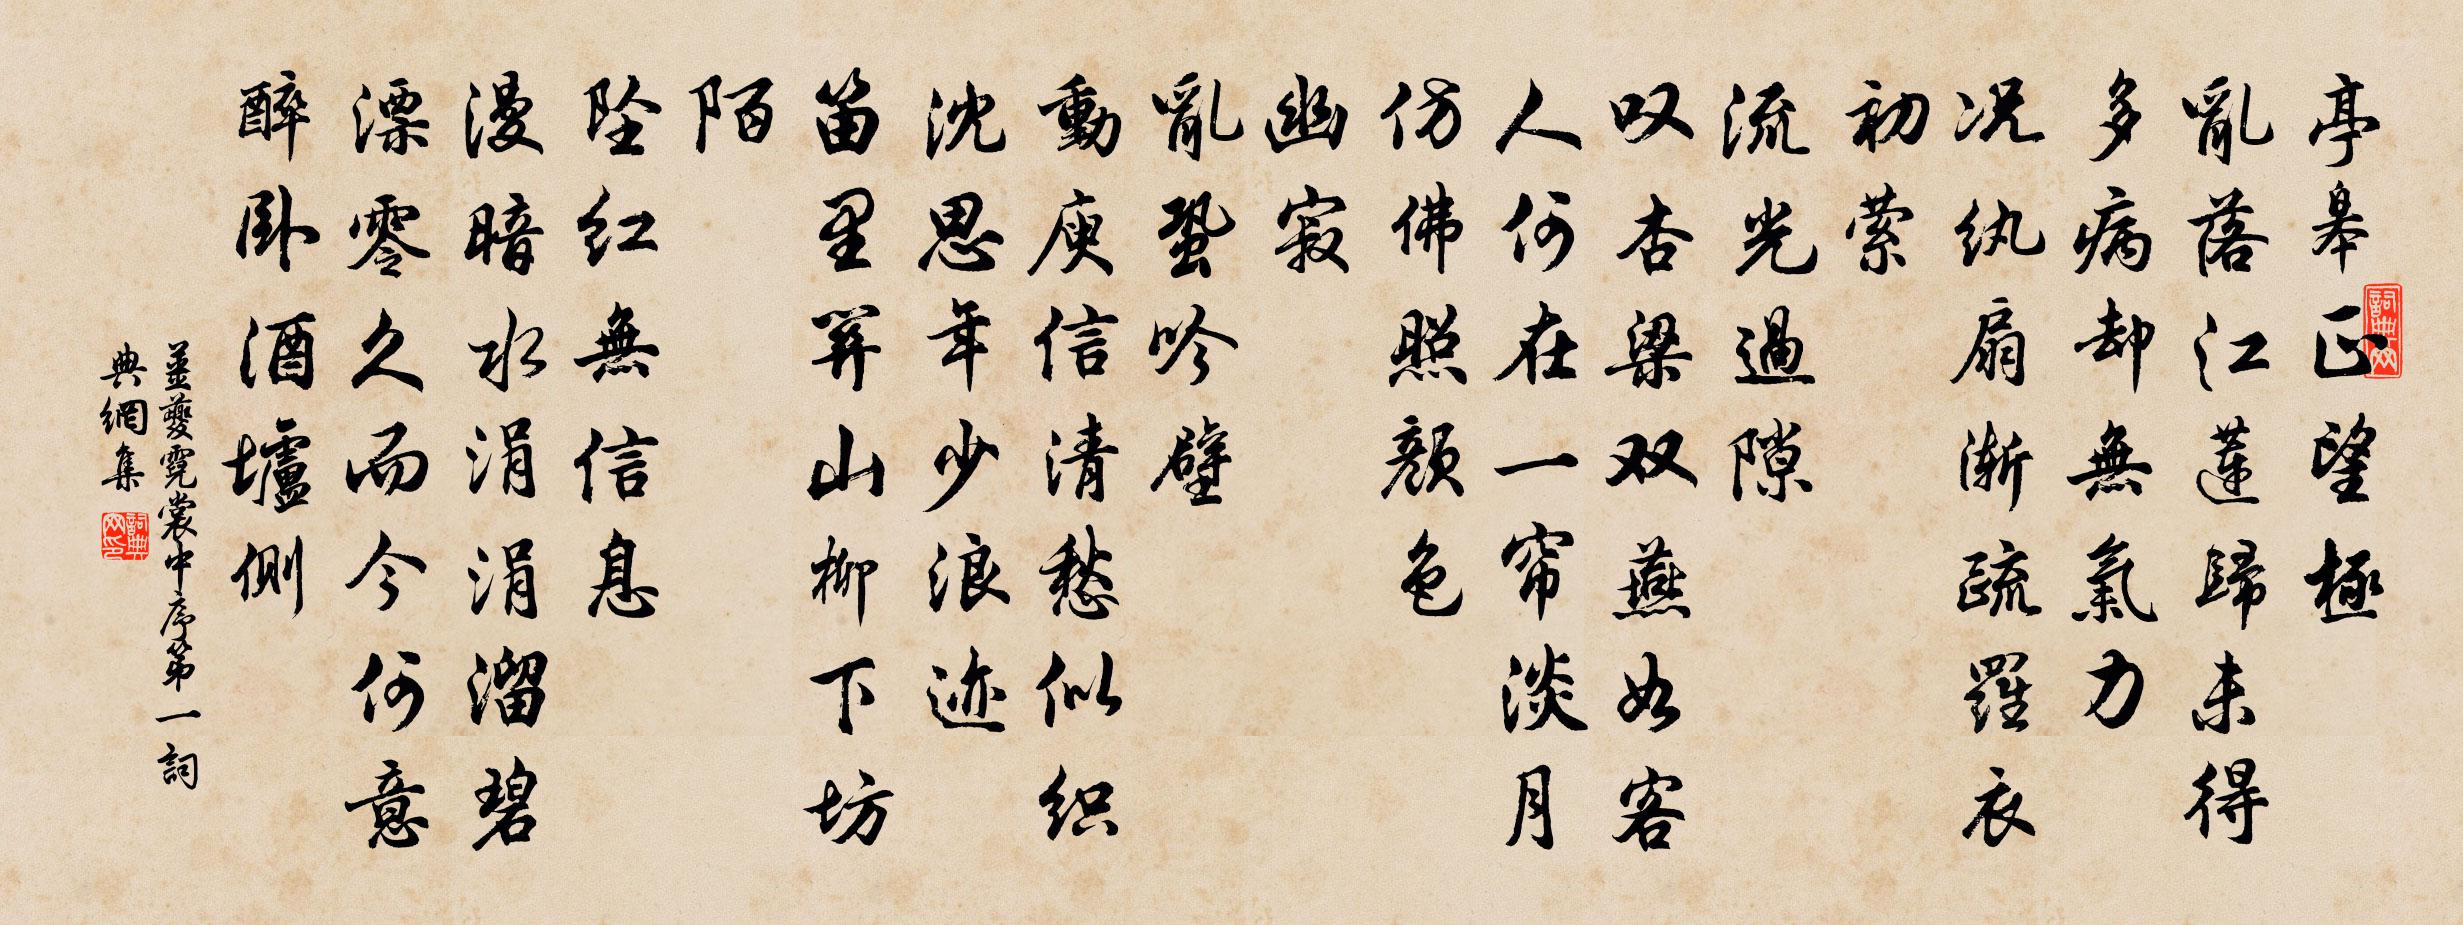 亭皋正望極
亂落江蓮歸未得
多病却無氣力
况纨扇渐疏羅衣
初索
流光過隙
叹杏梁双燕如客
人何在一帘淡月
仿佛照颜色
幽寂
亂蛩吟壁
動庾信清愁似织
沈思年少浪迹
笛里关山柳下坊
陌
坠红無信息
漫暗水涓涓溜碧
漂零久而今何意
醉卧酒壚側
姜夔霓裳中序第一詞
典網集
詞典网
詞典网印